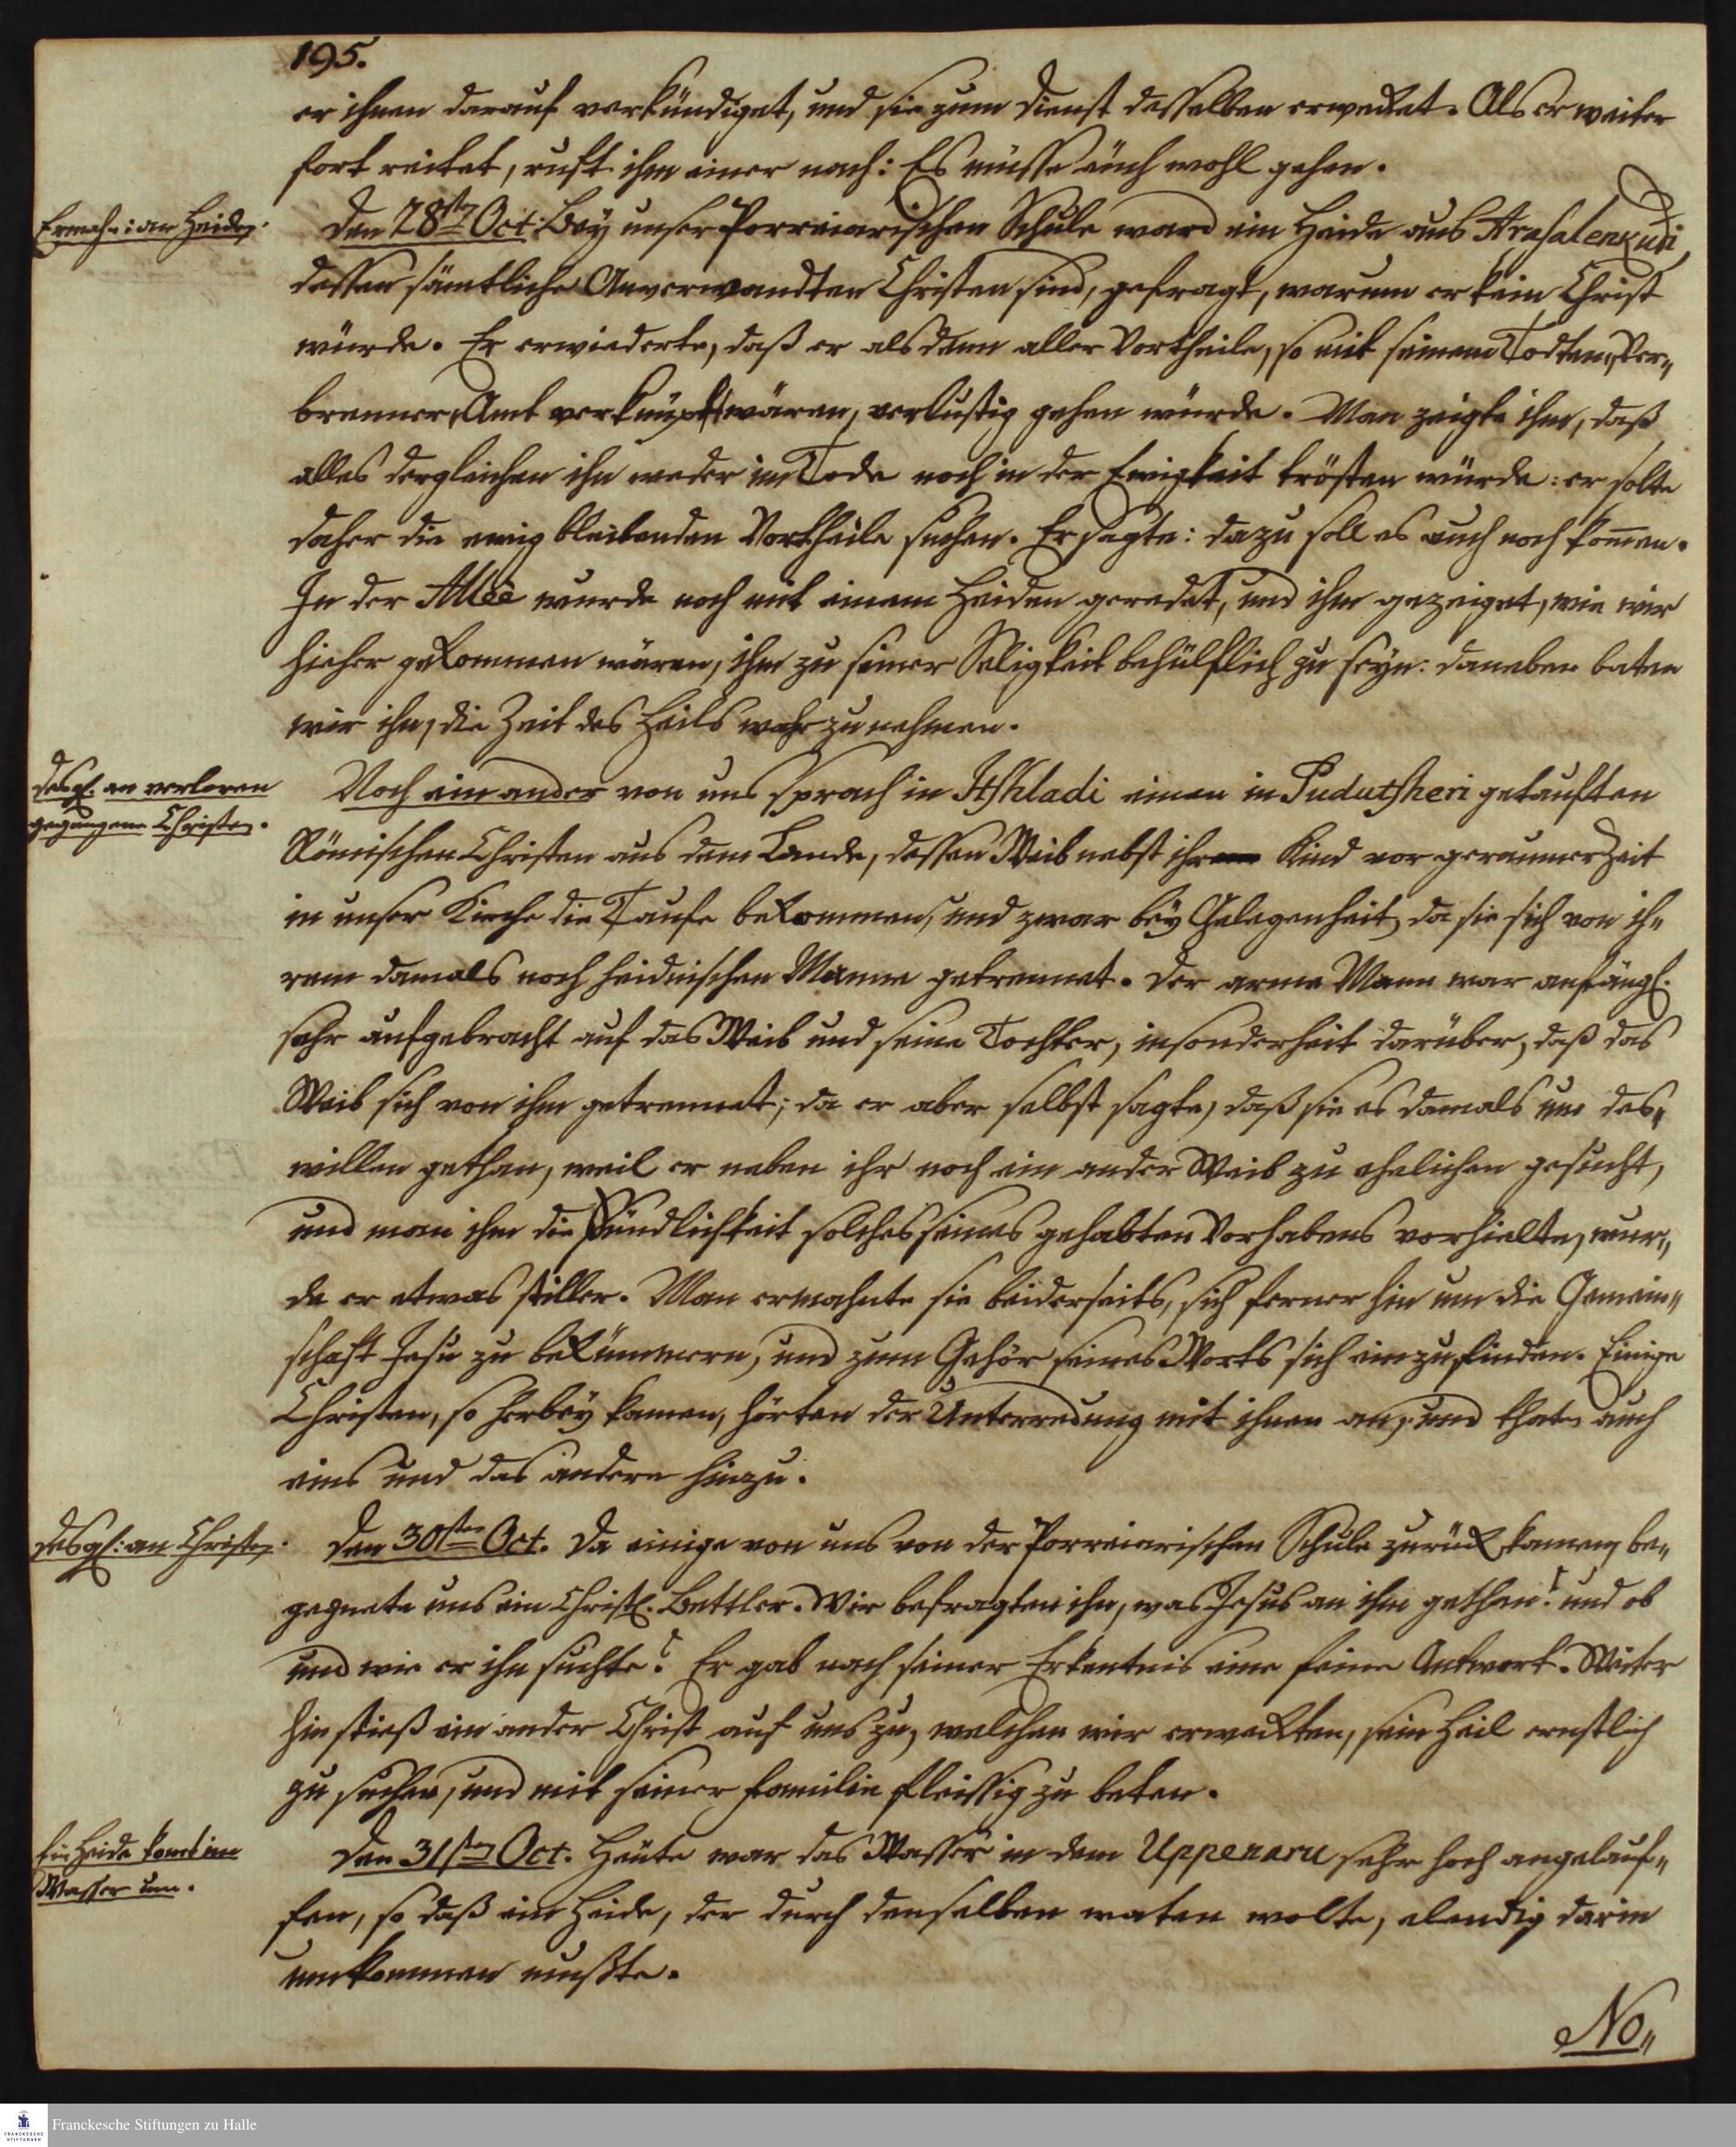 195.
er ihnen darauf verkündiget, und sie zum Dienst desselben erwecket. Als er weiter
fort reitet, ruft ihm einer nach: Es müsse euch wohl gehen.
Ermahn: an Heiden.
Den 28sten Oct. Bey unser Porreiarischen Schule ward ein Heide aus Arasalenkudi
dessen sämtliche Anverwandten Christen sind, gefragt, warum er kein Christ
würde. Er erwiederte, daß er alsdenn aller Vortheile, so mit seinem Todten„Ver„
brenner„Amt verknüpft wären, verlustig gehen würde. Man zeigte ihm, daß
alles dergleichen ihn weder im Tode noch in der Ewigkeit trösten würde: er solte
daher die ewig bleibenden Vortheile suchen. Er sagte: dazu soll es auch noch kom̄en.
In der Allée wurde noch mit einem Heiden geredet, und ihm gezeiget, wie wir
hieher gekommen wären, ihm zu seiner Seligkeit behülflich zu seyn: daneben baten
wir ihn, die Zeit des Heils wahrzunehmen.
desgl. an verloren
gegangene Christen.
Noch ein ander von uns sprach in Itshladi einen in Pudutsheri getauften
Römischen Christen aus dem Lande, dessen Weib nebst ihrem Kind vor geraumer Zeit
in unser Kirche die Taufe bekommen, und zwar bey Gelegenheit, da sie sich von ih„
rem damals noch heidnischen Manne getrennet. Der arme Mann war anfängl.
sehr aufgebracht auf das Weib und seine Tochter, insonderheit darüber, daß das
Weib sich von ihm getrennet; da er aber selbst sagte, daß sie es damals um des„
willen gethan, weil er neben ihr noch ein ander Weib zu ehelichen gesucht,
und man ihm die Sündlichkeit solches seines gehabten Vorhabens vorhielte, wur„
de er etwas stiller. Man ermahnte sie beiderseits, sich ferner hin um die Gemein„
schaft Jesu zu bekümmern, und zum Gehör seines Worts sich einzufinden. Einige
Christen, so herbey kamen, hörten der Unterredung mit ihnen an, und thaten auch
eins und das andere hinzu.
desgl: an Christen.
Den 30sten Oct. Da einige von uns von der Porreiarischen Schule zurück kamen, be„
gegnete uns ein Christl. Bettler. Wir befragten ihn, was Jesus an ihm gethan? und ob
und wie er ihn suchte? Er gab nach seiner Erkentnis eine feine Antwort. Weiter
hin stieß ein ander Christ auf uns zu, welchen wir erweckten, sein Heil ernstlich
zu suchen, und mit seiner Familie fleissig zu beten.
Ein Heide komt im
Wasser um.
Den 31sten Oct. Heute war das Wasser in dem Uppenaru sehr hoch angelauf„
fen, so daß ein Heide, der durch denselben waten wolte, elendig darin
umkommen mußte.
No„
Franckesche Stiftungen zu Halle
FRANCKESCHE
STIFTUNGEN